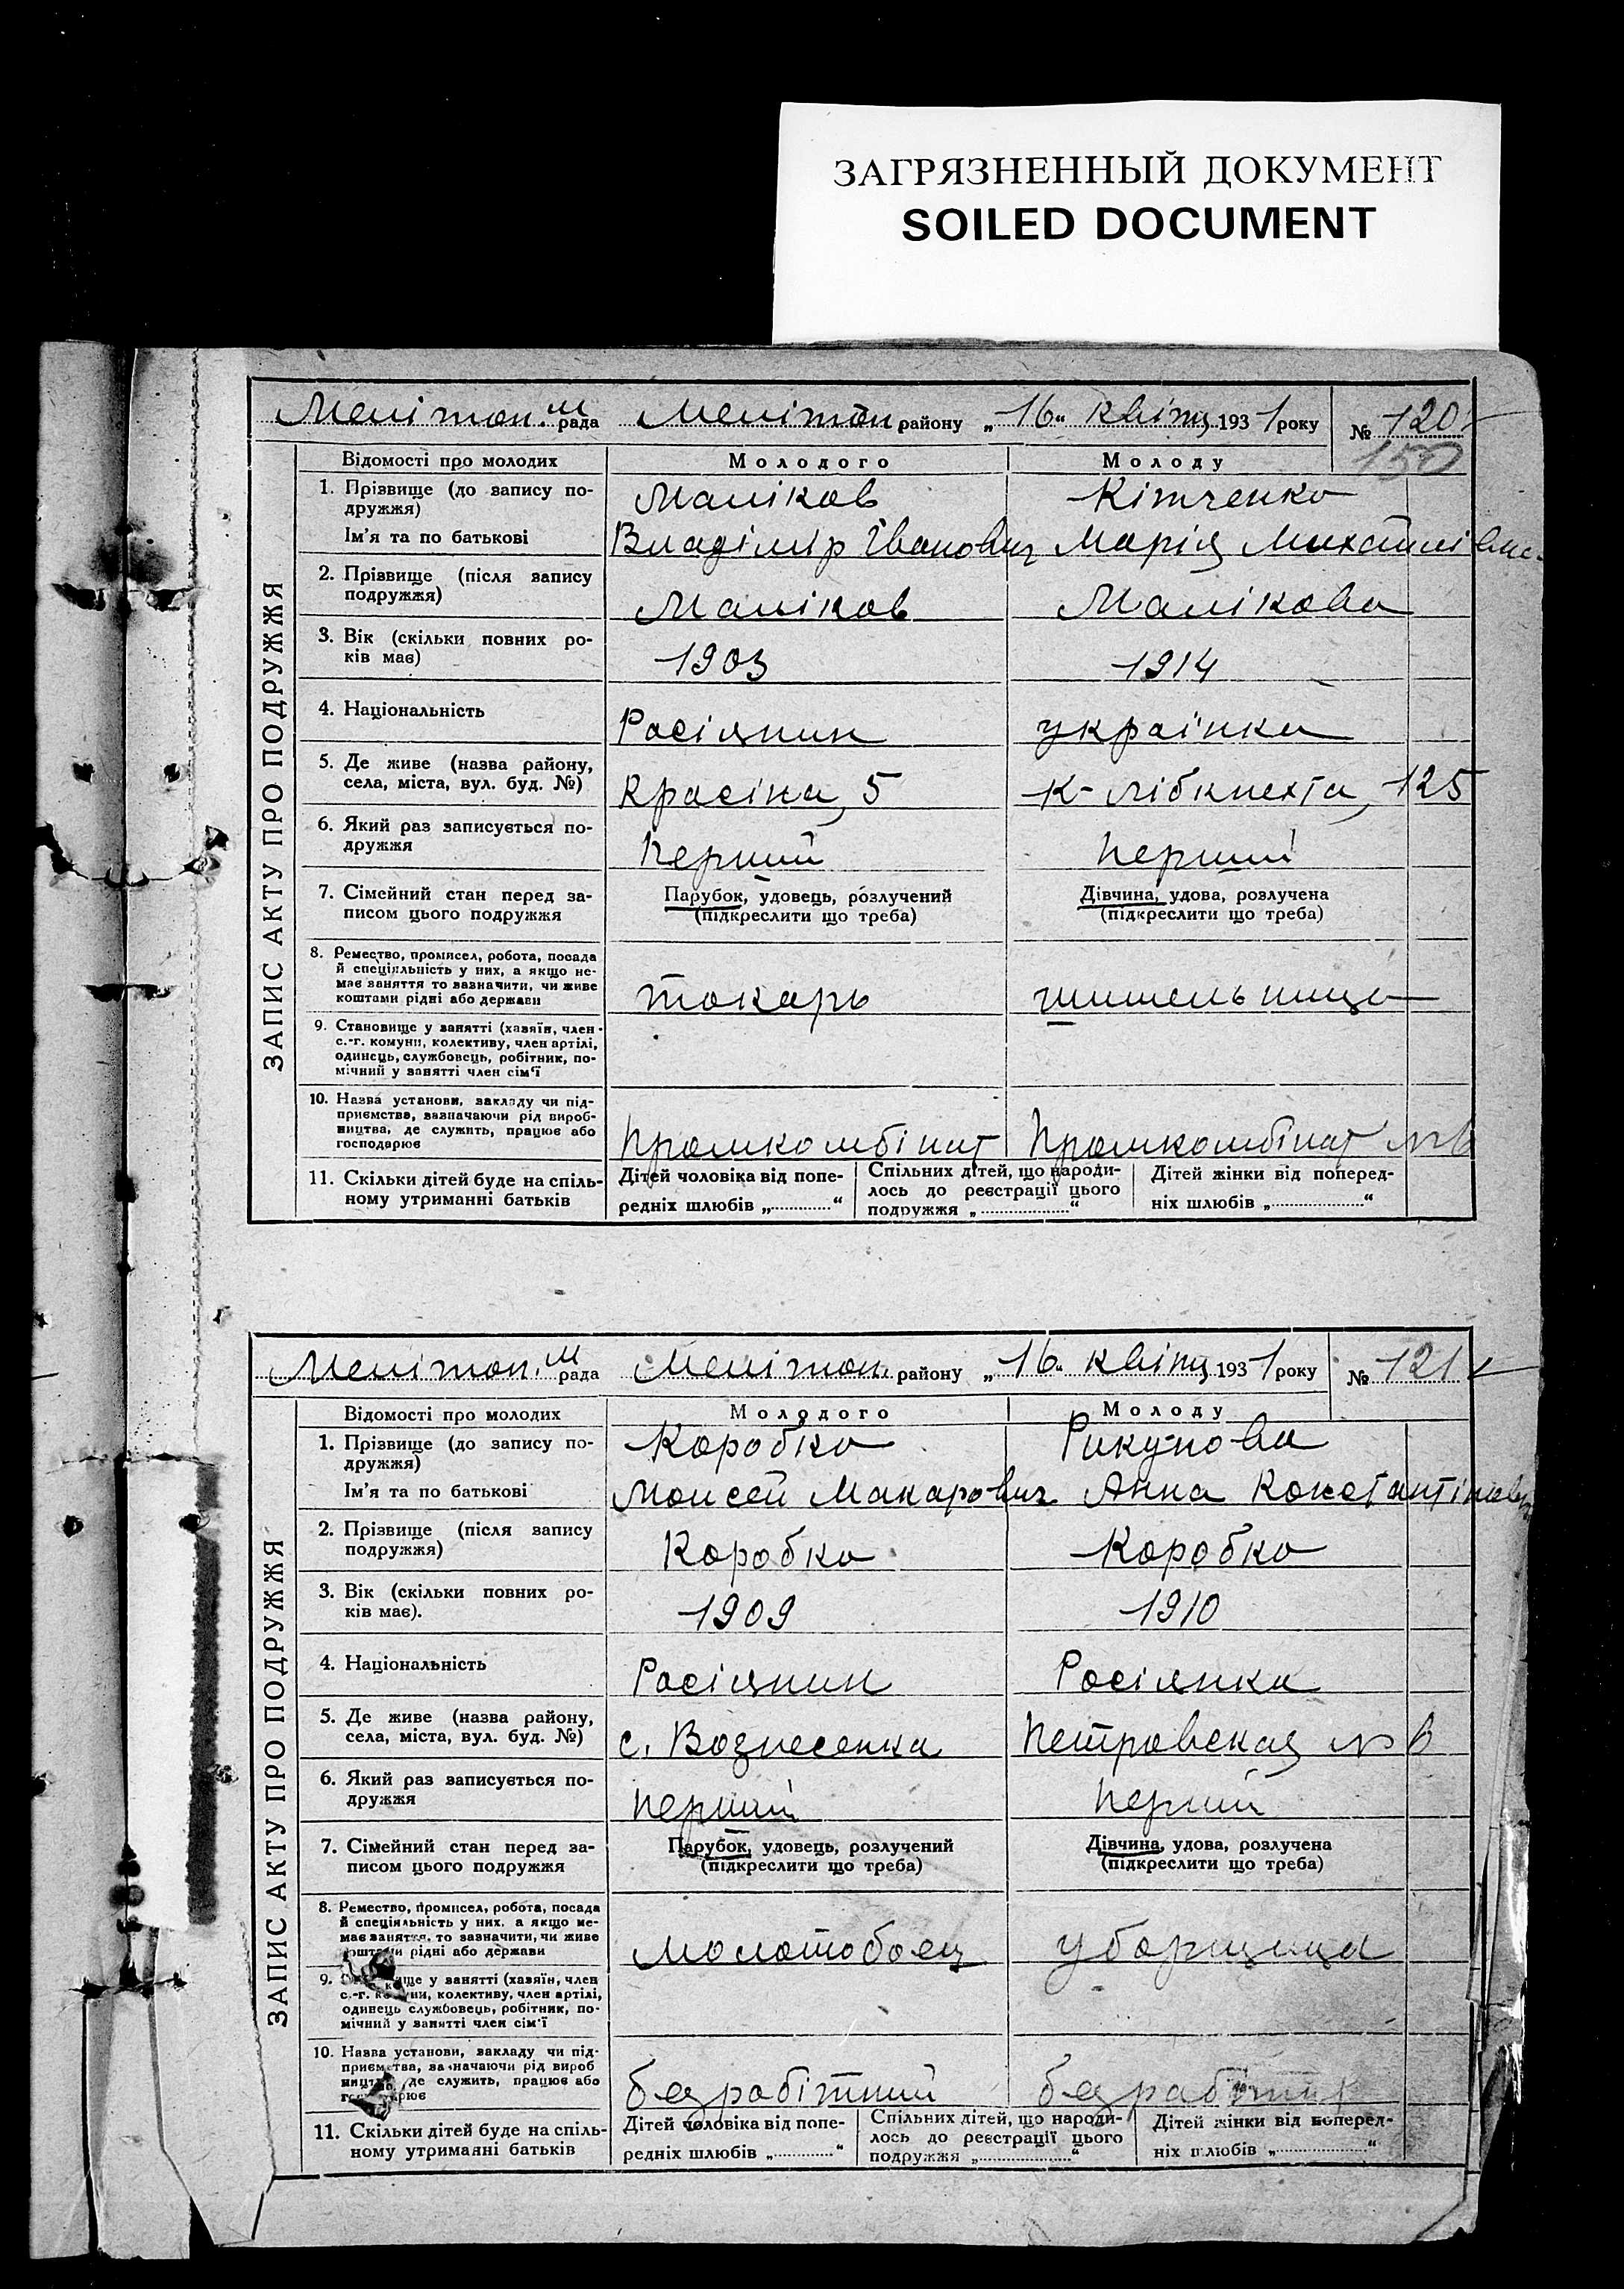 ЗАГРЯЗНЕННЫЙ ДОКУМЕНТ
SOILED DOCUMENT
Мелітоп. м рада Мелітоп. району „16" квітц 1931 року № 120
150
ЗАПИС АКТУ ПРО ПОДРУЖЖЯ
Відомості про молодих Молодого Молоду
1. Прізвище (до запису по-
дружжя) Маліков Кітченко
Ім'я та по батькові Владімір Іванович Марія Михайлівна
2. Прізвище (після запису
подружжя) Маліков Малікова
3. Вік (скільки повних ро-
ків має) 1903 1914
4. Національність Росіянин українка
5. Де живе (назва району,
села, міста, вул. буд. №) Красіна, 5 К-Лібкнехта, 125
6. Який раз записується по-
дружжя Перший Перший
7. Сімейний стан перед за-
писом цього подружжя
Парубок, удовець, розлучений
(підкреслити що треба)
Дівчина, удова, розлучена
(підкреслити що треба)
8. Ремество, промисел, робота, посада
й спеціяльність у них, а якщо не-
має заняття то зазначити, чи живе
коштами рідні або держави токарь шишельница
9. Становище у занятті (хазяїн, член
с.-г. комуни, колективу, член артілі,
одинець, службовець, робітник, по-
мічний у занятті член сім'ї
10. Назва установи, закладу чи під-
приємства, зазначаючи рід вироб-
ництва, де служить, працює або
господарює Промкомбінат Промкомбінат № 6
11. Скільки дітей буде на спіль-
ному утриманні батьків
Дітей чоловіка від попе-
редніх шлюбів „ “
Спільних дітей, що народи-
лось до реєстрації цього
подружжя „ “
Дітей жінки від поперед-
ніх шлюбів „ “
Мелітоп. м рада Мелітоп. району „16" квітц 1931 року № 121
ЗАПИС АКТУ ПРО ПОДРУЖЖЯ
Відомості про молодих Молодого Молоду
1. Прізвище (до запису по-
дружжя) Коробко Рикунова
Ім'я та по батькові Моисей Макарович Анна Константінівн
2. Прізвище (після запису
подружжя) Коробко Коробко
3. Вік (скільки повних ро-
ків має). 1909 1910
4. Національність Росіянин Росіянка
5. Де живе (назва району,
села, міста, вул. буд. №) с. Вознесенка Петровская № 6
6. Який раз записується по-
дружжя перший перший
7. Сімейний стан перед за-
писом цього подружжя
Парубок, удовець, розлучений
(підкреслити що треба)
Дівчина, удова, розлучена
(підкреслити що треба)
8. Ремество, промисел, робота, посада
й спеціяльність у них, а якщо не-
має заняття, то зазначити, чи живе
рідні або держави молотобоец уборщица
9. у занятті (хазяїн, член
с.-г. комуни, колективу, член артілі,
одинець службовець, робітник, по-
мічний у занятті член сім'ї
10. Назва установи, закладу чи під-
приємства, зазначаючи рід вироб
де служить, працює або
безробітний
11. Скільки дітей буде на спіль-
ному утриманні батьків
Дітей чоловіка від попе-
редніх шлюбів „ “
Спільних дітей, що народи-
лось до реєстрації цього
подружжя „ “
Дітей жінки від поперед-
ніх шлюбів „ “